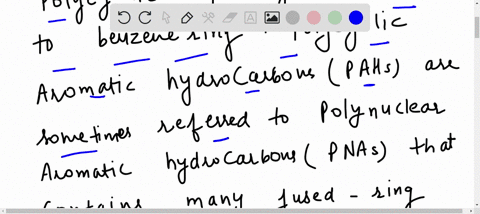 to benzene ring. Polycyclic
Aromatic hydrocarbons (PAHs) are
sometimes referred to Polynuclear
Aromatic hydrocarbons (PNAs) that
contains many fused-ring